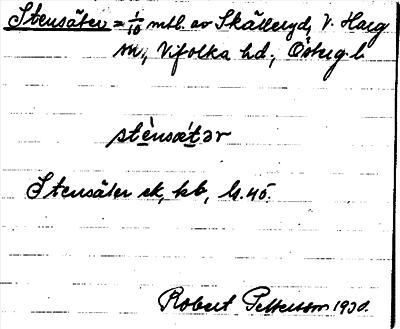 Stensäter = 1/10 mtl. av Skälleryd, V. Harg
sn, Vifolka hd, Österg. l.
stènsǽtər
Stensäter ek, kb, ls. 45.
Robert Pettersson 1930.